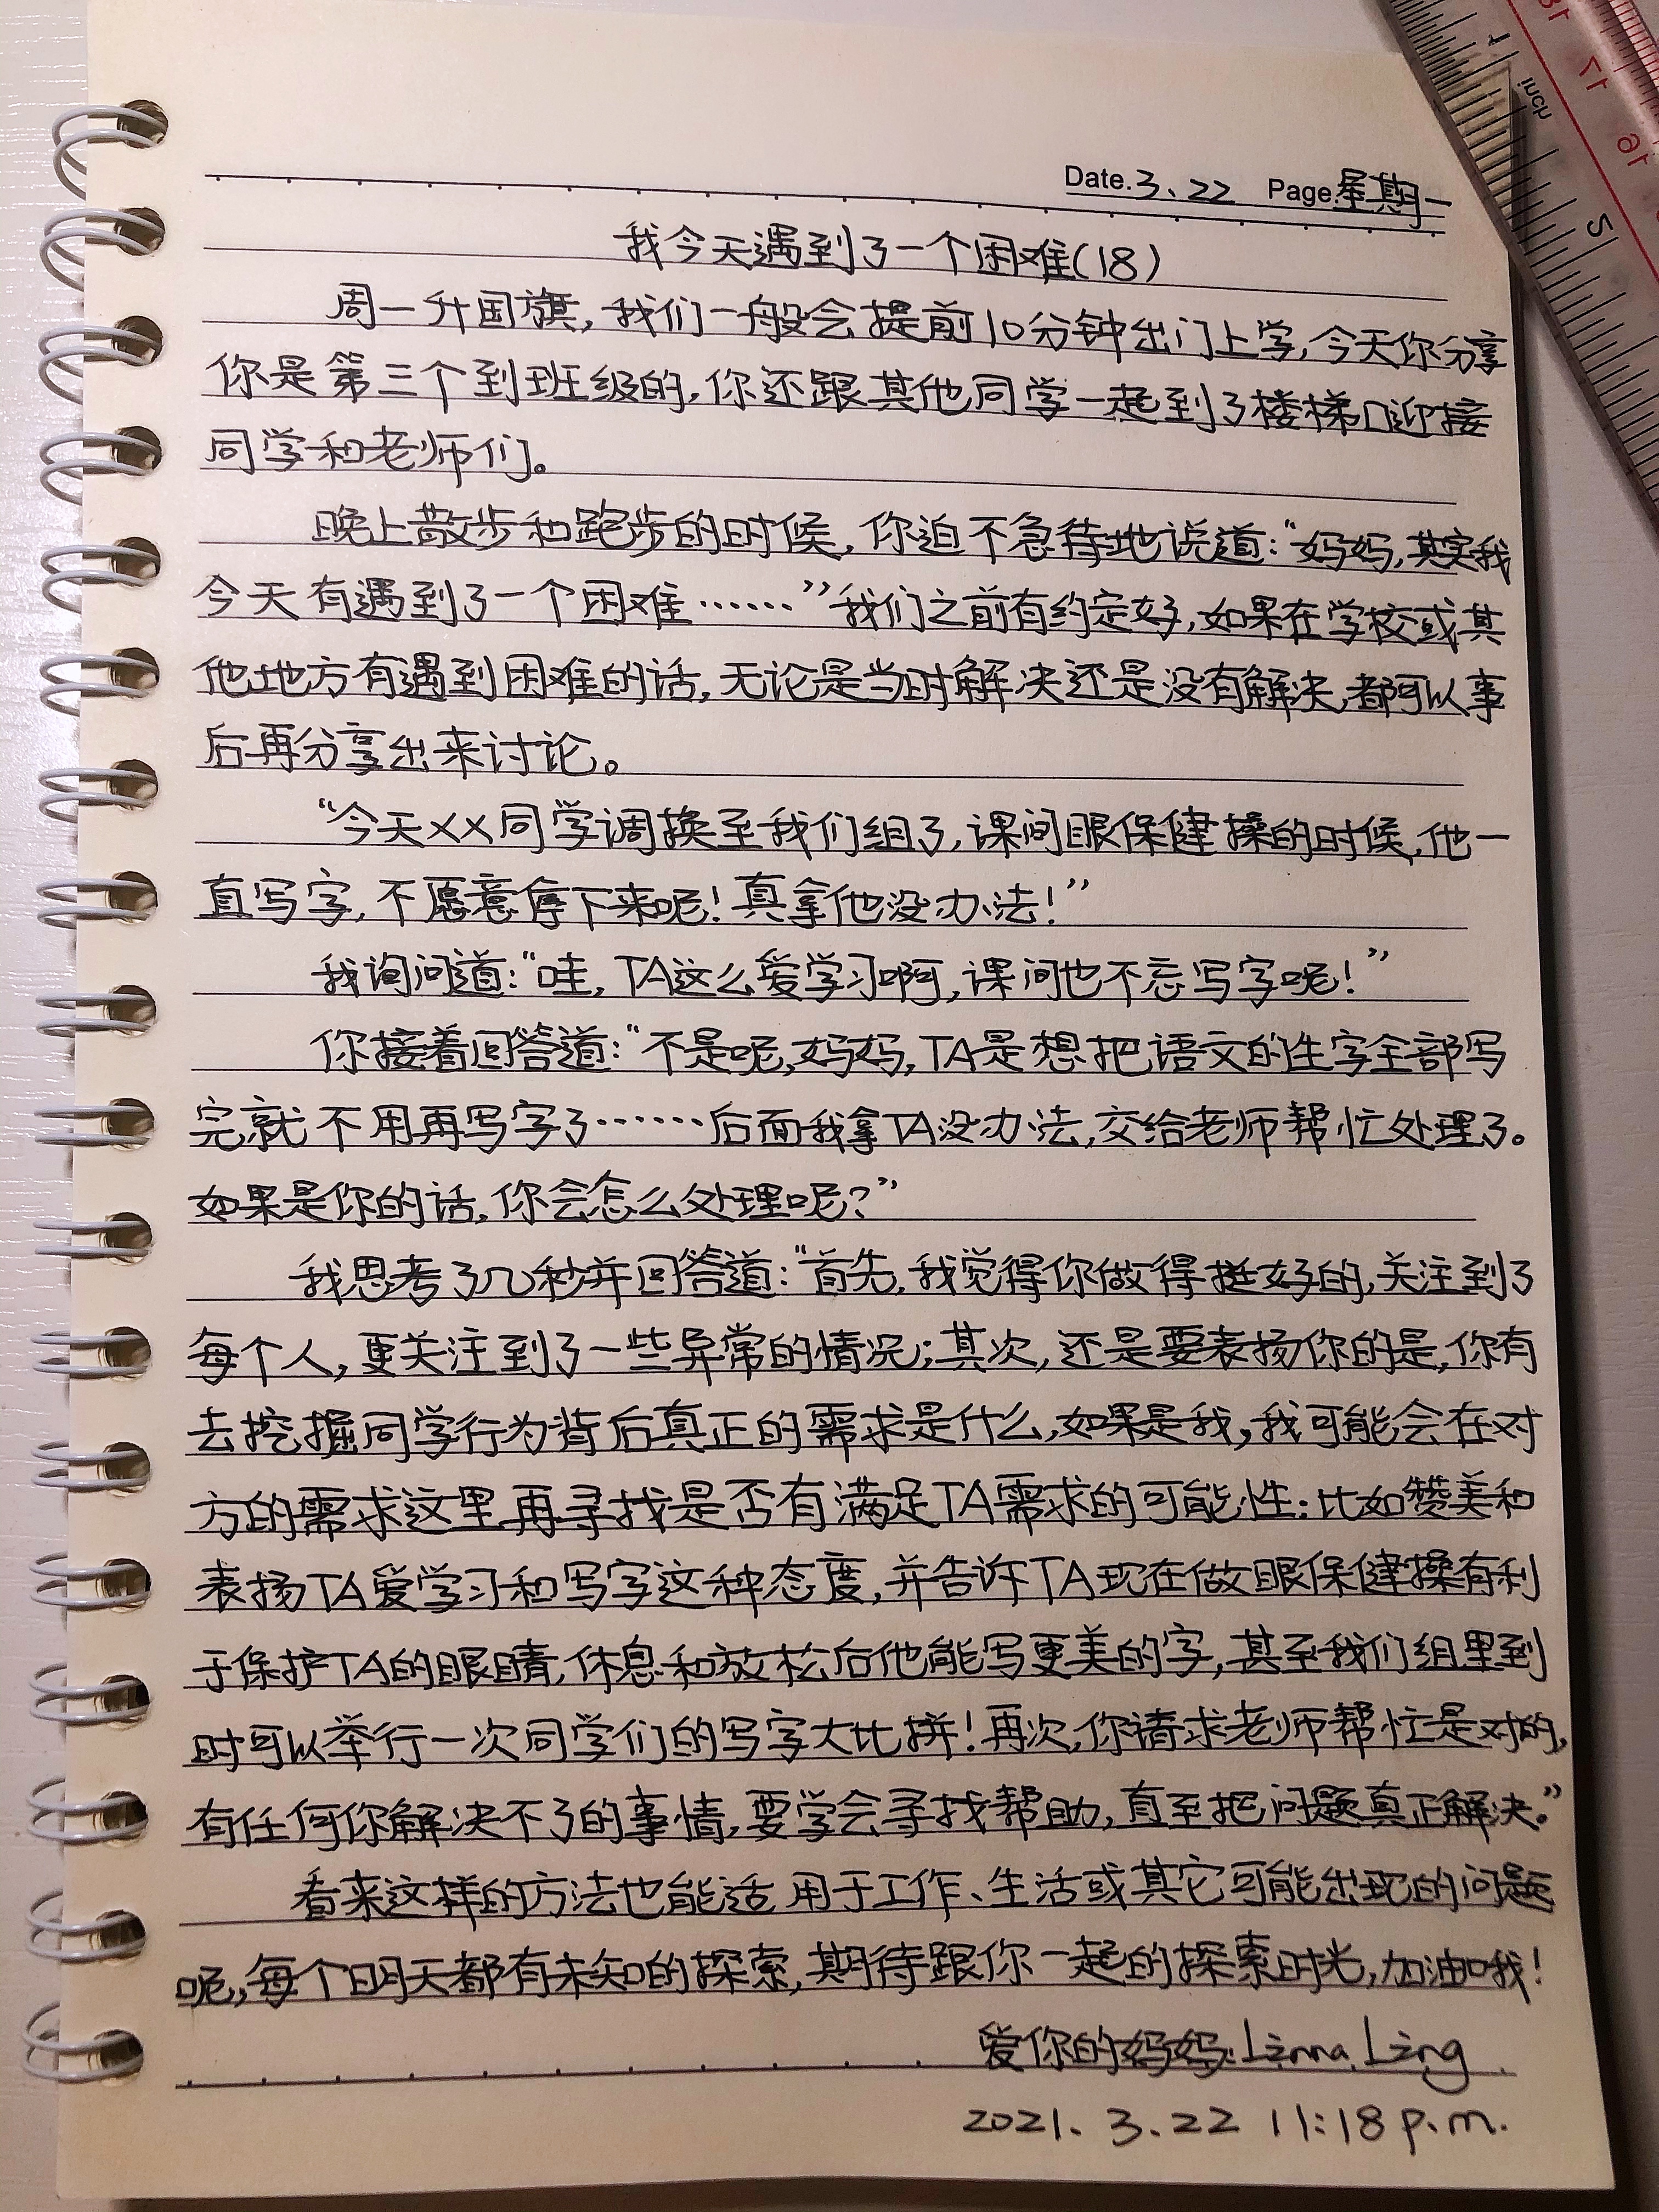 Date.3.22 Page.星期一
我今天遇到了一个困难(18)
周一升国旗,我们一般会提前10分钟出门上学,今天你分享
你是第三个到班级的,你还跟其他同学一起到了楼梯口迎接
同学和老师们。
晚上散步和跑步的时候,你迫不急待地说道:“妈妈,其实我
今天有遇到了一个困难……”我们之前有约定好,如果在学校或其
他地方有遇到困难的话,无论是当时解决还是没有解决,都可以事
后再分享出来讨论。
“今天XX同学调换至我们组了,课间眼保健操的时候,他一
直写字,不愿意停下来呢!真拿他没办法!”
我询问道:“哇,TA这么爱学习啊,课间也不忘写字呢!”
你接着回答道:“不是呢,妈妈,TA是想把语文的生字全部写
完就不用再写字了……后面我拿TA没办法,交给老师帮忙处理了。
如果是你的话,你会怎么处理呢?”
我思考了几秒并回答道:“首先,我觉得你做得挺好的,关注到了
每个人,更关注到了一些异常的情况;其次,还是要表扬你的是,你有
去挖掘同学行为背后真正的需求是什么,如果是我,我可能会在对
方的需求这里再寻找是否有满足TA需求的可能性:比如赞美和
表扬TA爱学习和写字这种态度,并告诉TA现在做眼保健操有利
于保护TA的眼睛,休息和放松后他能写更美的字,甚至我们组里到
时可以举行一次同学们的写字大比拼!再次,你请求老师帮忙是对的,
有任何你解决不了的事情,要学会寻找帮助,直至把问题真正解决。”
看来这样的方法也能适用于工作、生活或其它可能出现的问题
呢,每个明天都有未知的探索,期待跟你一起的探索时光,加油哦!
爱你的妈妈:Linna Ling
2021.3.22 11:18 p.m.
inch
5
16
17
18